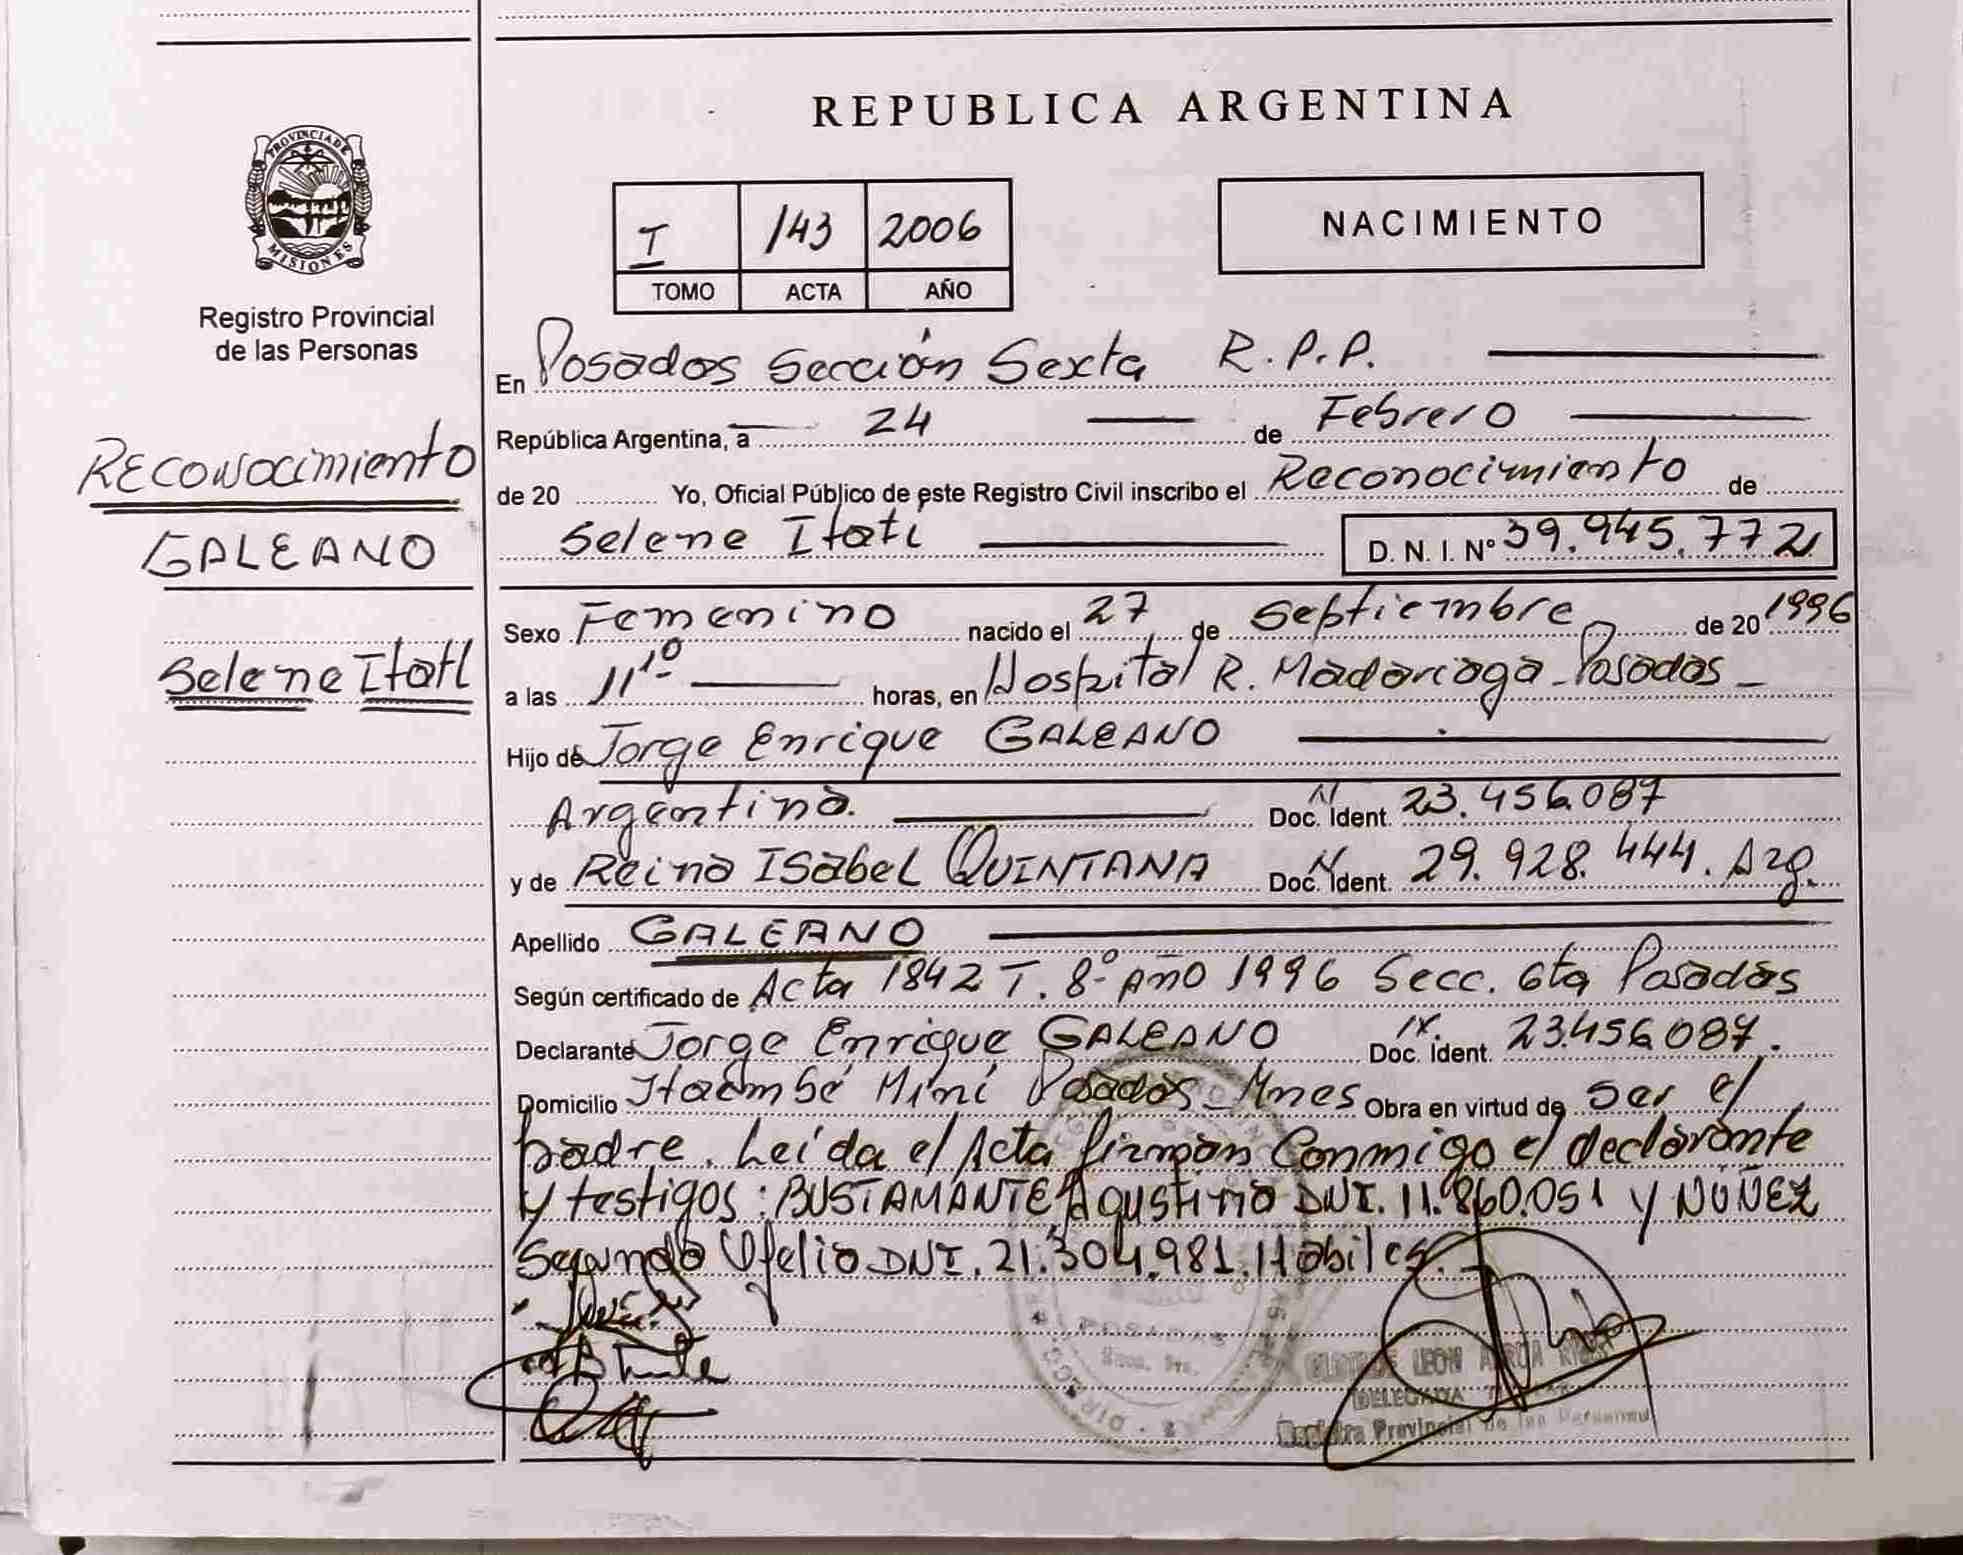 REPUBLICA ARGENTINA
PROVINCIA DE
MISIONES
Registro Provincial
de las Personas
I 143 2006
TOMO ACTA AÑO
NACIMIENTO
RECONOCIMIENTO
GALEANO
Selene Itatí
En Posadas Sección Sexta R.P.P.
República Argentina, a 24 de Febrero
de 20 Yo, Oficial Público de este Registro Civil inscribo el Reconocimiento de
Selene Itatí D. N. I. Nº 39.945.772
Sexo Femenino nacido el 27 de Septiembre de 20 1996
a las 11¹⁰ horas, en Hospital R. Madariaga - Posadas -
Hijo de Jorge Enrique GALEANO
Argentino. Doc. Ident. 23.456.087
y de Reina ISabel QUINTANA Doc. Ident. 29.928.444. Arg.
Apellido GALEANO
Según certificado de Acta 1842 T. 8º Año 1996 Secc. 6ta Posadas
Declarante Jorge Enrique GALEANO Doc. Ident. 23.456.087.
Domicilio Itaembé Miní Posadas - Mnes Obra en virtud de ser el
padre. Leída el Acta firman Conmigo el declarante
y testigos: BUSTAMANTE Agustina DNI. 11.860.051 y NÚÑEZ
Segundo Ofelio DNI. 21.304.981. Hábiles.
POSADAS
LEON
DELEGADA
Registro Provincial de las Personas